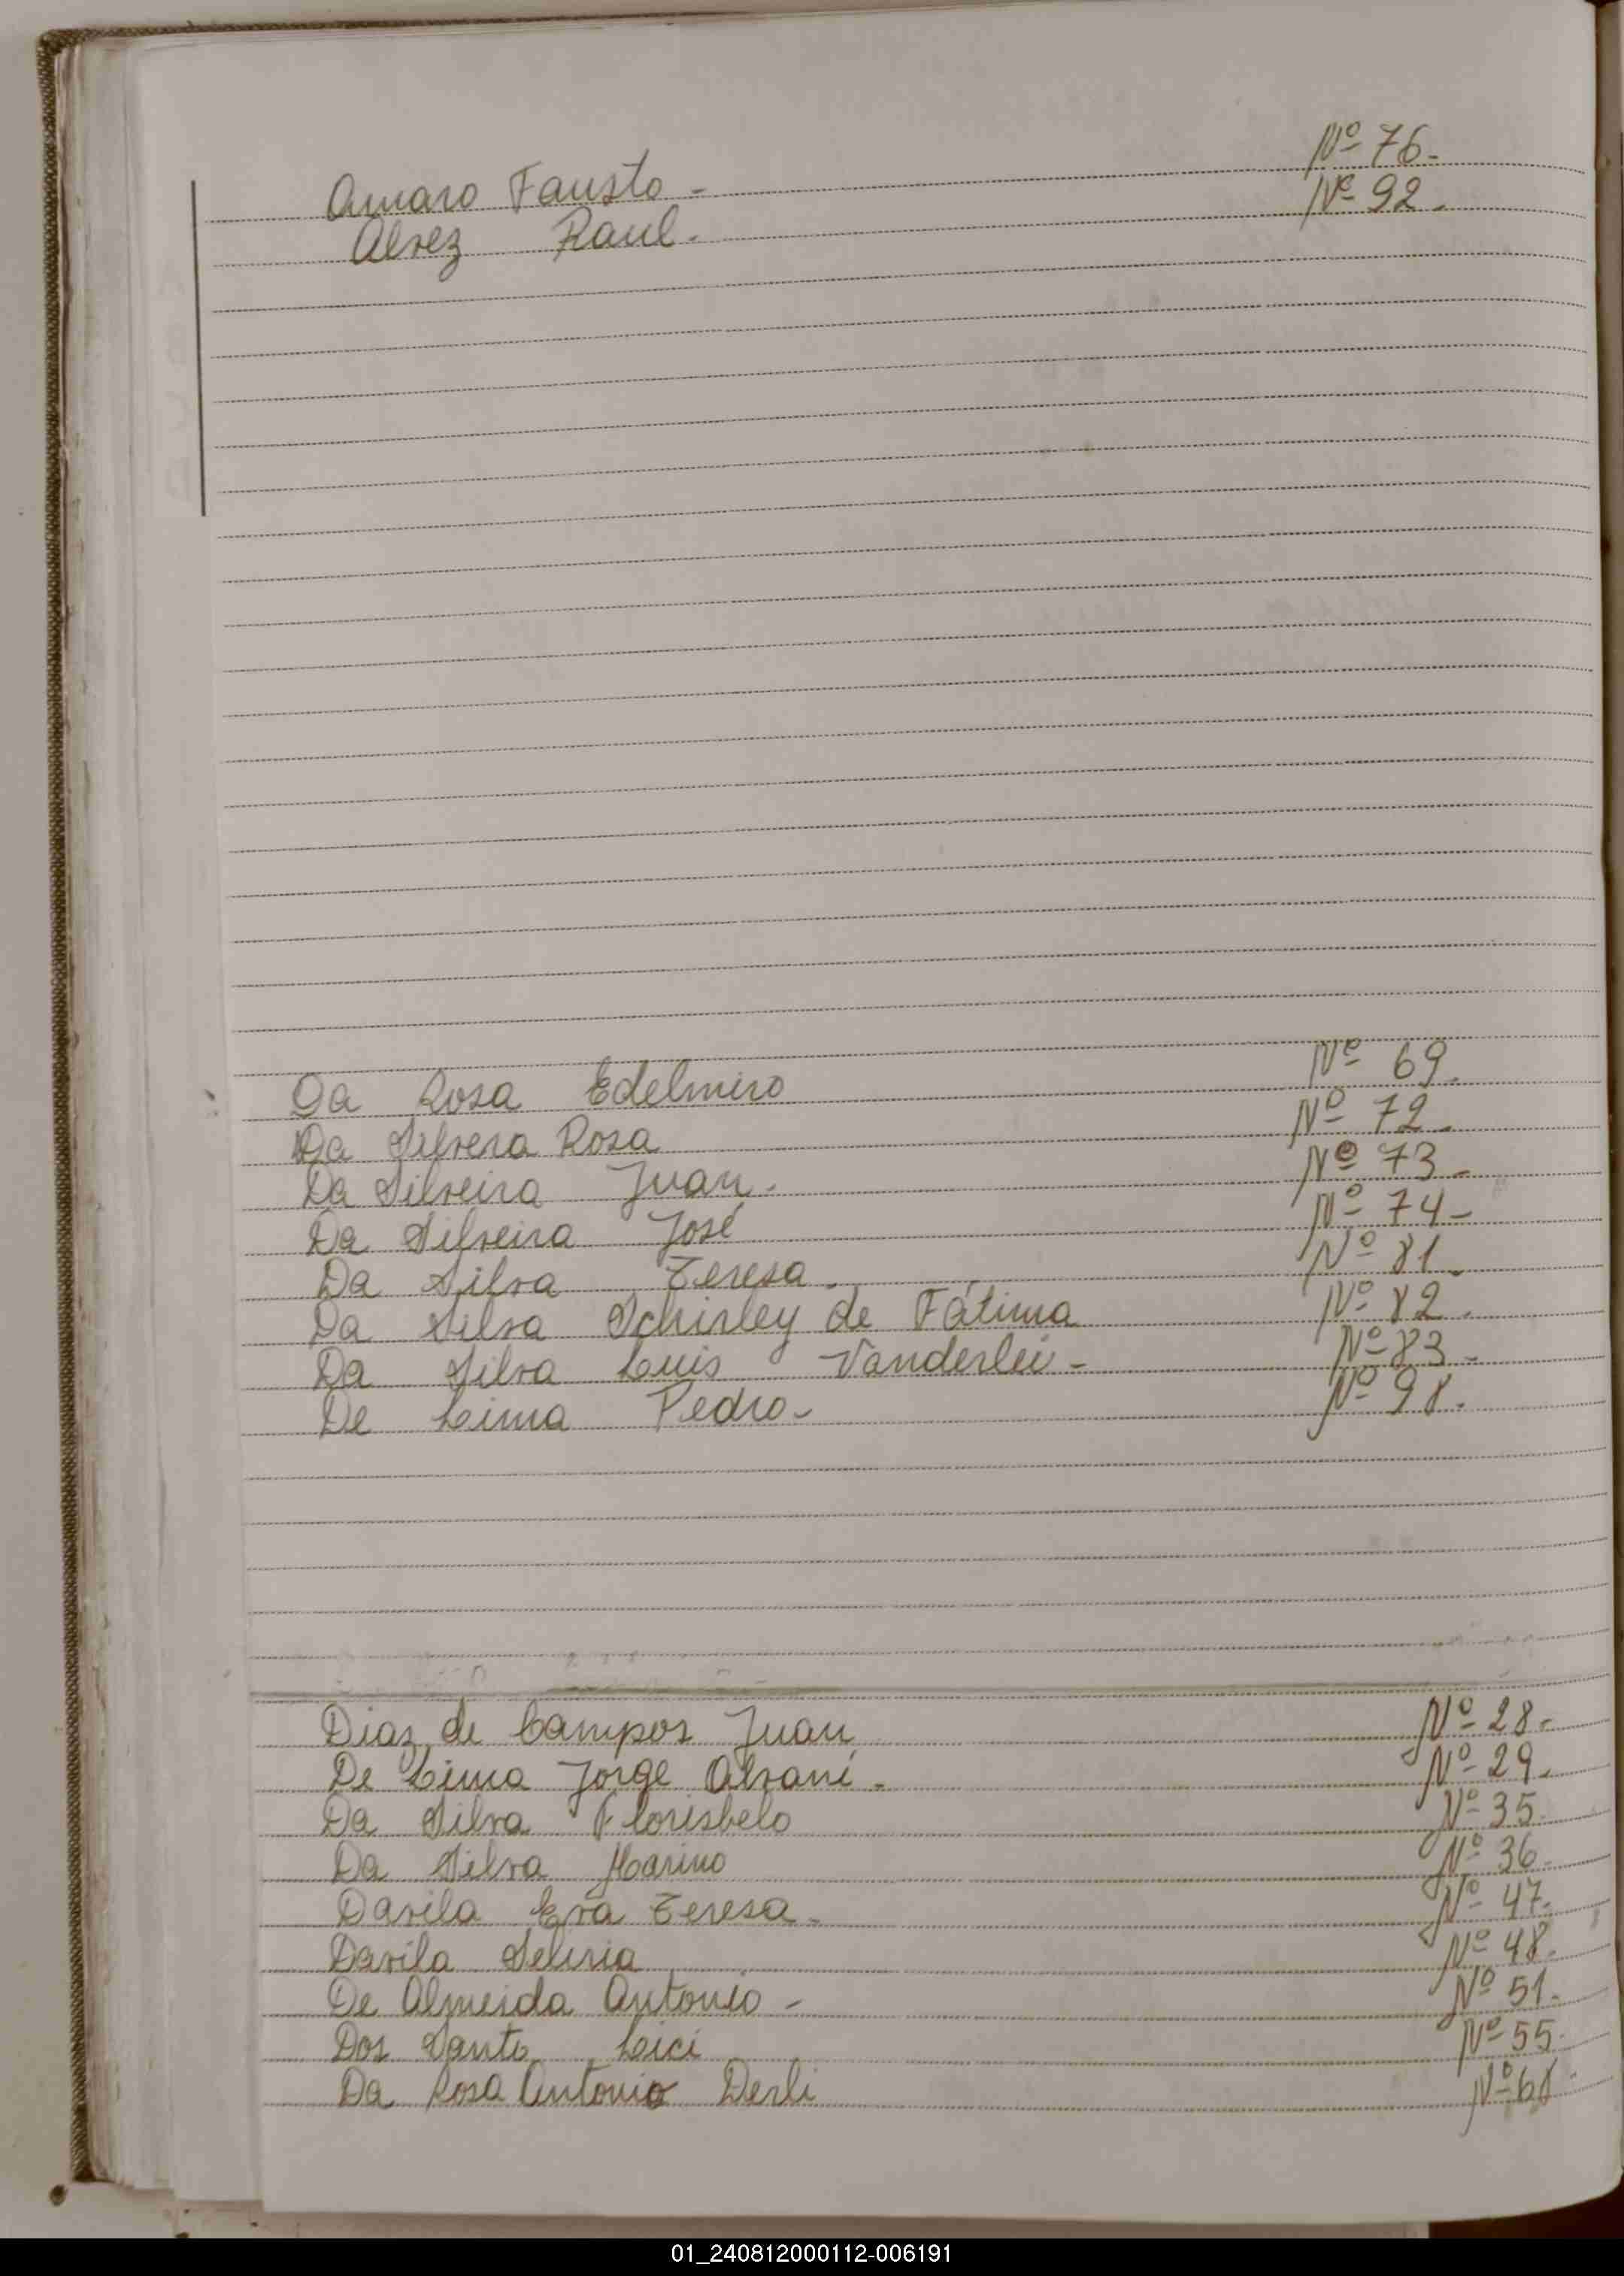 Amaro Fausto - Nº 76.
Alvez Raul. Nº 92.
Da Rosa Edelmiro Nº 69.
Da Silvera Rosa Nº 72.
Da Silveira Juan. Nº 73.
Da Silveira José Nº 74-
Da Silva Teresa. Nº 81.
Da Silva Schirley de Fátima Nº 82.
Da Silva Luis Vanderlei - Nº 83-
De Lima Pedro- Nº 98.
Diaz de Campos Juan Nº 28-
De Lima Jorge Alvani - Nº 29.
Da Silva Florisbelo Nº 35.
Da Silva Marino Nº 36.
Davila Eva Teresa. Nº 47.
Davila Nº 48.
De Almeida Antonio - Nº 51.
Dos Santo Lici Nº 55.
Da Rosa Antonio Derli Nº 68
01_240812000112-006191